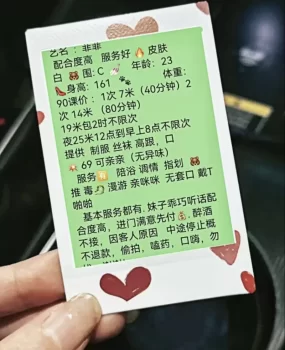 艺名：菲菲
配合度高 服务好🔥皮肤
白 围:C 年龄：23
身高：161 体重：
90课价：1次 7米（40分钟）2
次 14米（80分钟）
19米包2时不限次
夜25米12点到早上8点不限次
提供 制服 丝袜 高跟，口
69 可亲亲（无异味）
服务 陪浴 调情 指划
推 毒 漫游 亲咪咪 无套口 戴T
啪啪
基本服务都有，妹子乖巧听话配
合度高，进门满意先付💰，醉酒
不接，因客人原因 中途停止概
不退款，偷拍，嗑药，口嗨，勿